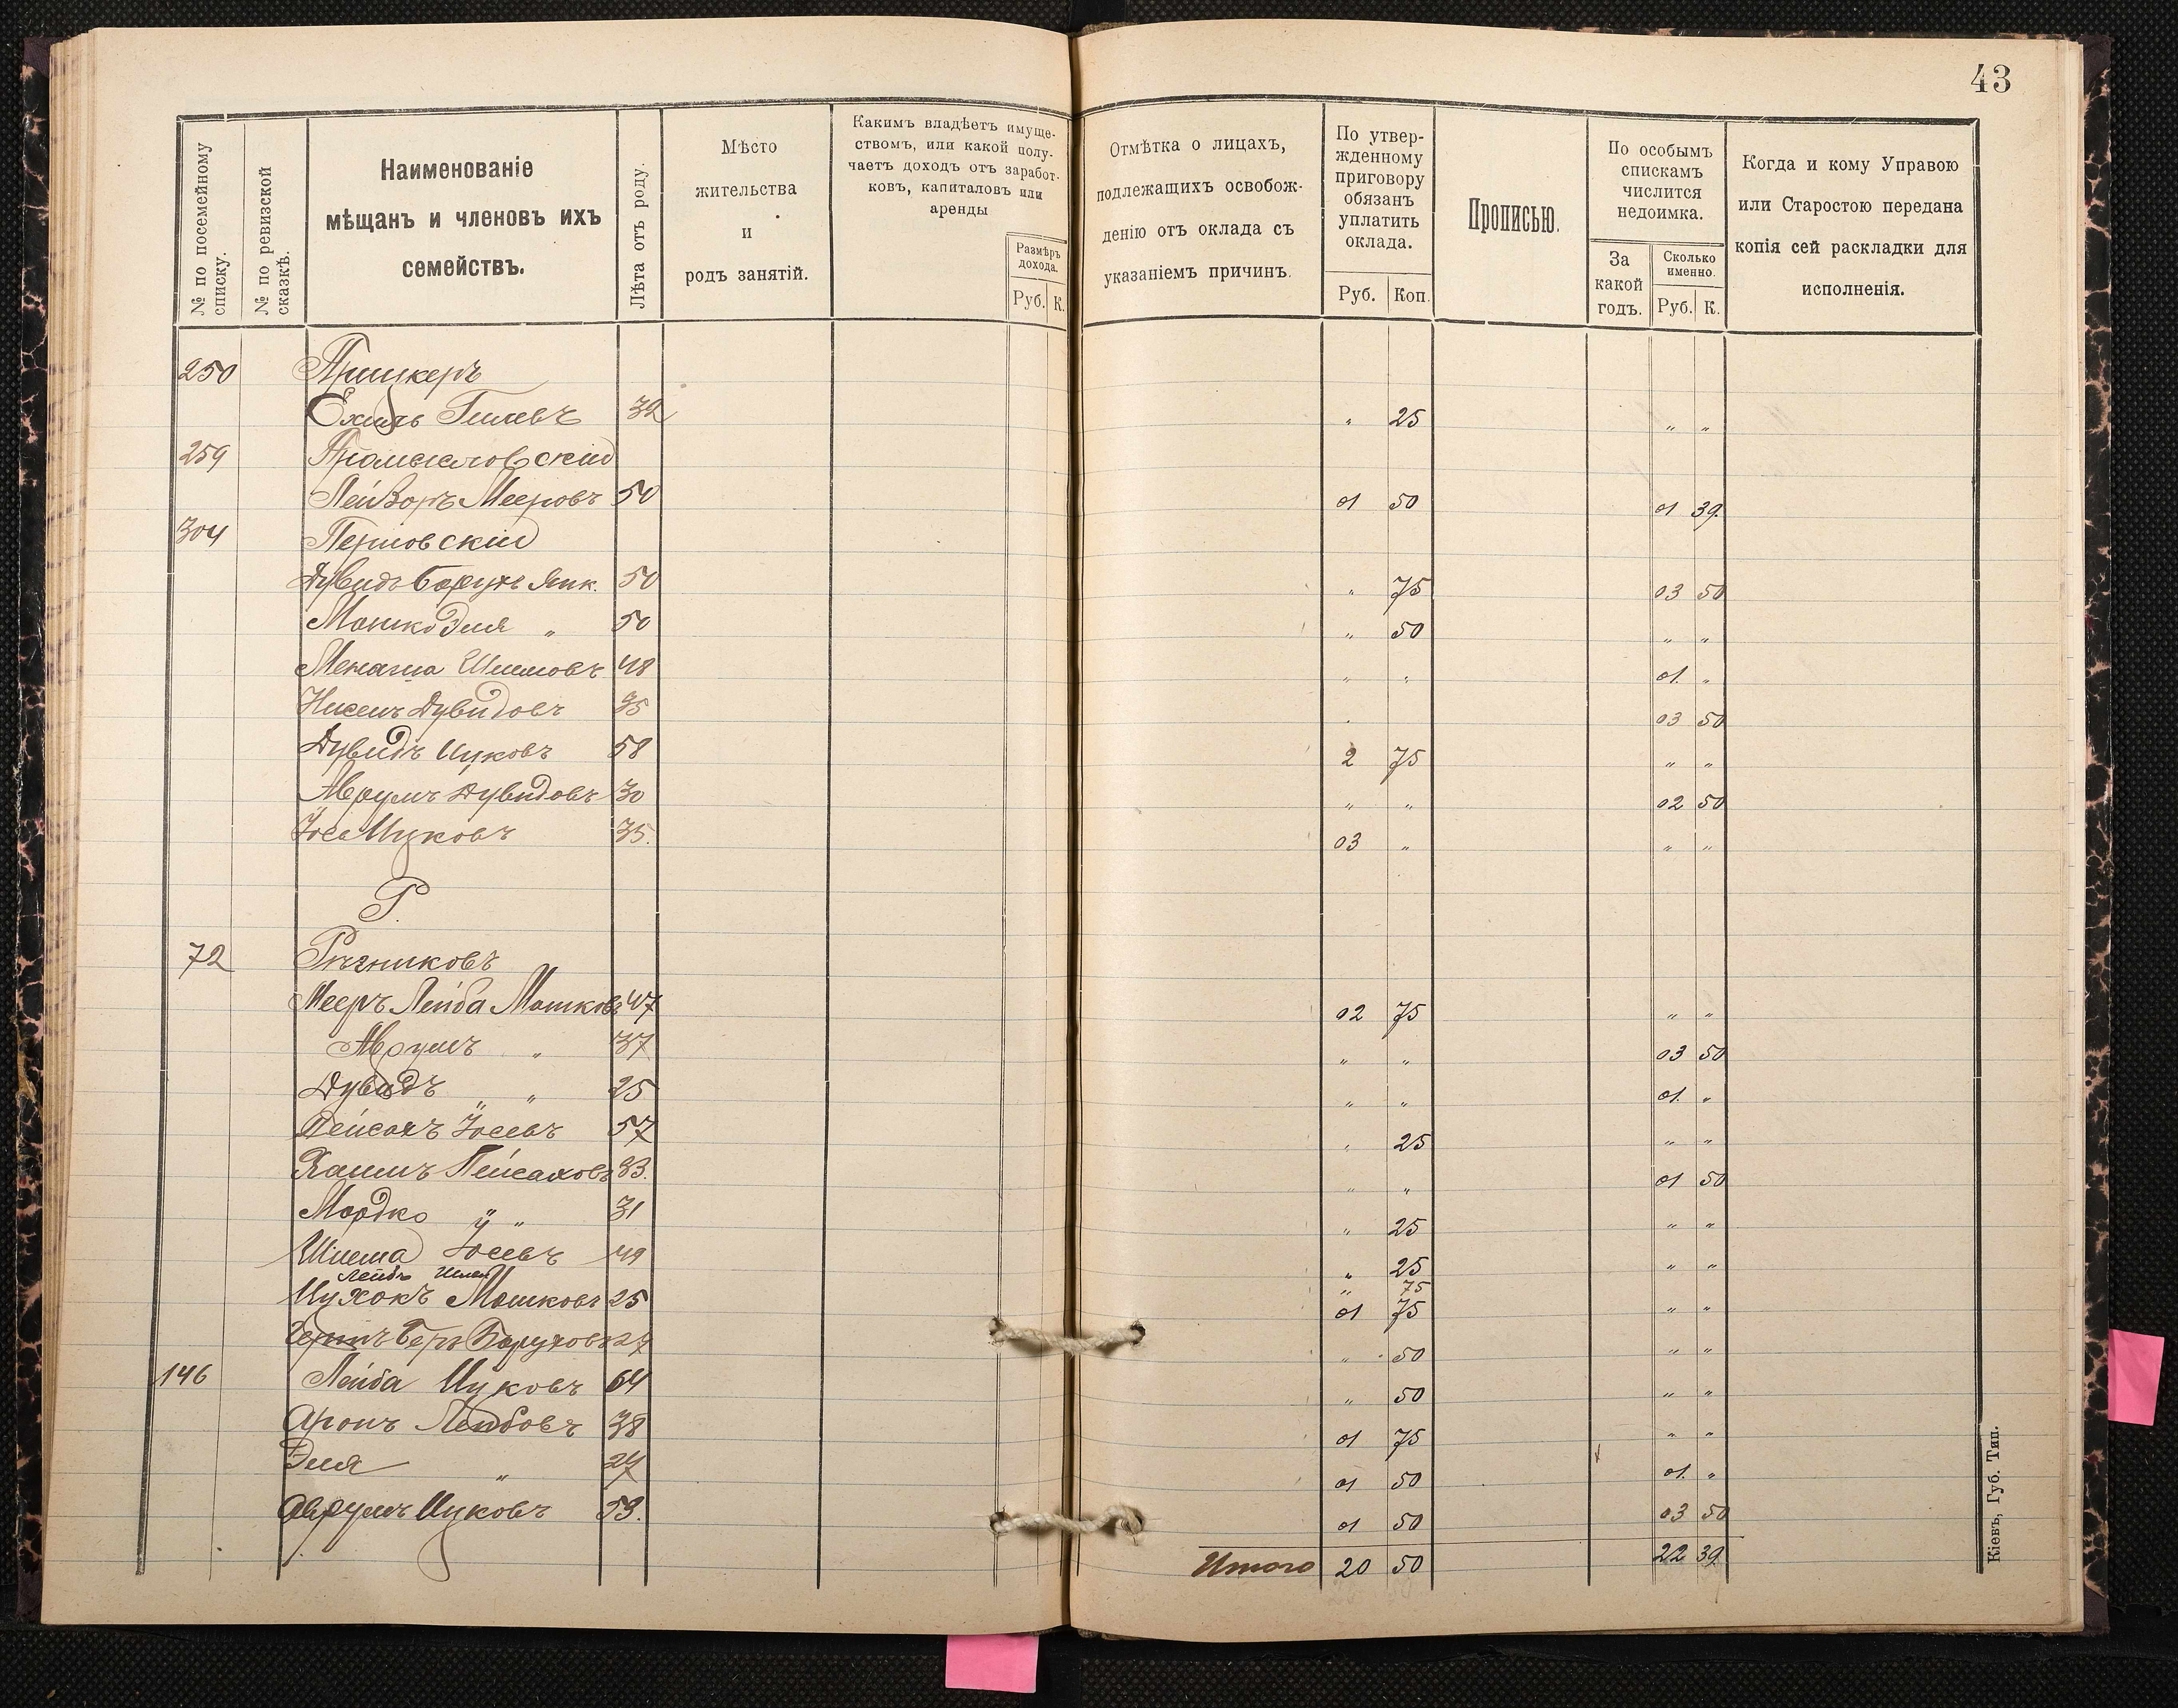 43
№ по посемейному списку.
№ по ревизской сказкѣ.
Наименованіе
мѣщанъ и членовъ ихъ
семействъ.
Лѣта отъ роду.
Мѣсто
жительства
и
родъ занятій.
Какимъ владѣетъ имуще-
ствомъ, или какой полу-
чаетъ доходъ отъ заработ-
ковъ, капиталовъ или
аренды
Размѣръ
дохода.
Руб. К.
Отмѣтка о лицахъ,
подлежащихъ освобож-
денію отъ оклада съ
указаніемъ причинъ.
По утвер-
жденному
приговору
обязанъ
уплатить
оклада.
Руб. Коп.
Прописью.
По особымъ
спискамъ
числится
недоимка.
За
какой
годъ.
Сколько
именно.
Руб. К.
Когда и кому Управою
или Старостою передана
копія сей раскладки для
исполненія.
250 Прицкеръ
Ехиль 32 " 25 " "
259
Лейзоръ Мееровъ 50 01 50 01 39.
304 Перловскій
Дувидъ Борухъ Ицк. 50 " 75 03 50
Мошко Эля " 50 " 50 " "
48 " " 01. "
Нисенъ Дувидовъ 35 03 50
Дувидъ Ицковъ 58 2 75 " "
Аврумъ Дувидовъ 30 " " 02 50
Іось Ицковъ 35. 03 " " "
Р.
72 Рѣзниковъ
Мееръ Лейба Мошковъ 47 02 75 " "
Аврумъ " 37 " " 03 50
Дувидъ " " 25 " " 01. "
Пейсахъ Іосевъ 57 " 25 " "
Хаимъ Пейсаховъ 33. " " 01 50
Мордко " " 31 " 25 " "
Шлема Іосевъ 49 " 25 " "
Лейбъ " 75
Ицхокъ Мошковъ 25 01 75 " "
Беръ Боруховъ 27 " 50 " "
146 Лейба Ицковъ 64 " 50 " "
Аронъ Лейбовъ 38 01 75 " "
Эля " 27 01 50 01. "
Аврумъ Ицковъ 53. 01 50 03 50
Итого 20 50 22 39
Кіевъ, Губ. Тип.